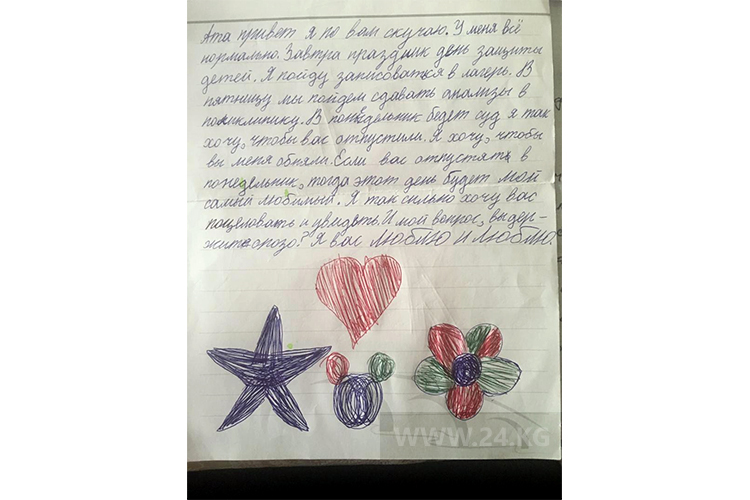 Ата привет я по вам скучаю. У меня всё
нормально. Завтра праздник день защиты
детей. Я пойду записоваться в лагерь. В
пятницу мы пойдем сдавать анализы в
поликлинику. В понедельник бедет суд я так
хочу, чтобы вас отпустили. Я хочу, чтобы
вы меня обняли. Если вас отпустят в
понедельник, тогда этот день будет мой
самый любимый. Я так сильно хочу вас
поцеловать и увидеть. И мой вопрос, вы дер-
жите орозо? Я вас ЛЮБЛЮ И ЛЮБЛЮ.
WWW.24.KG